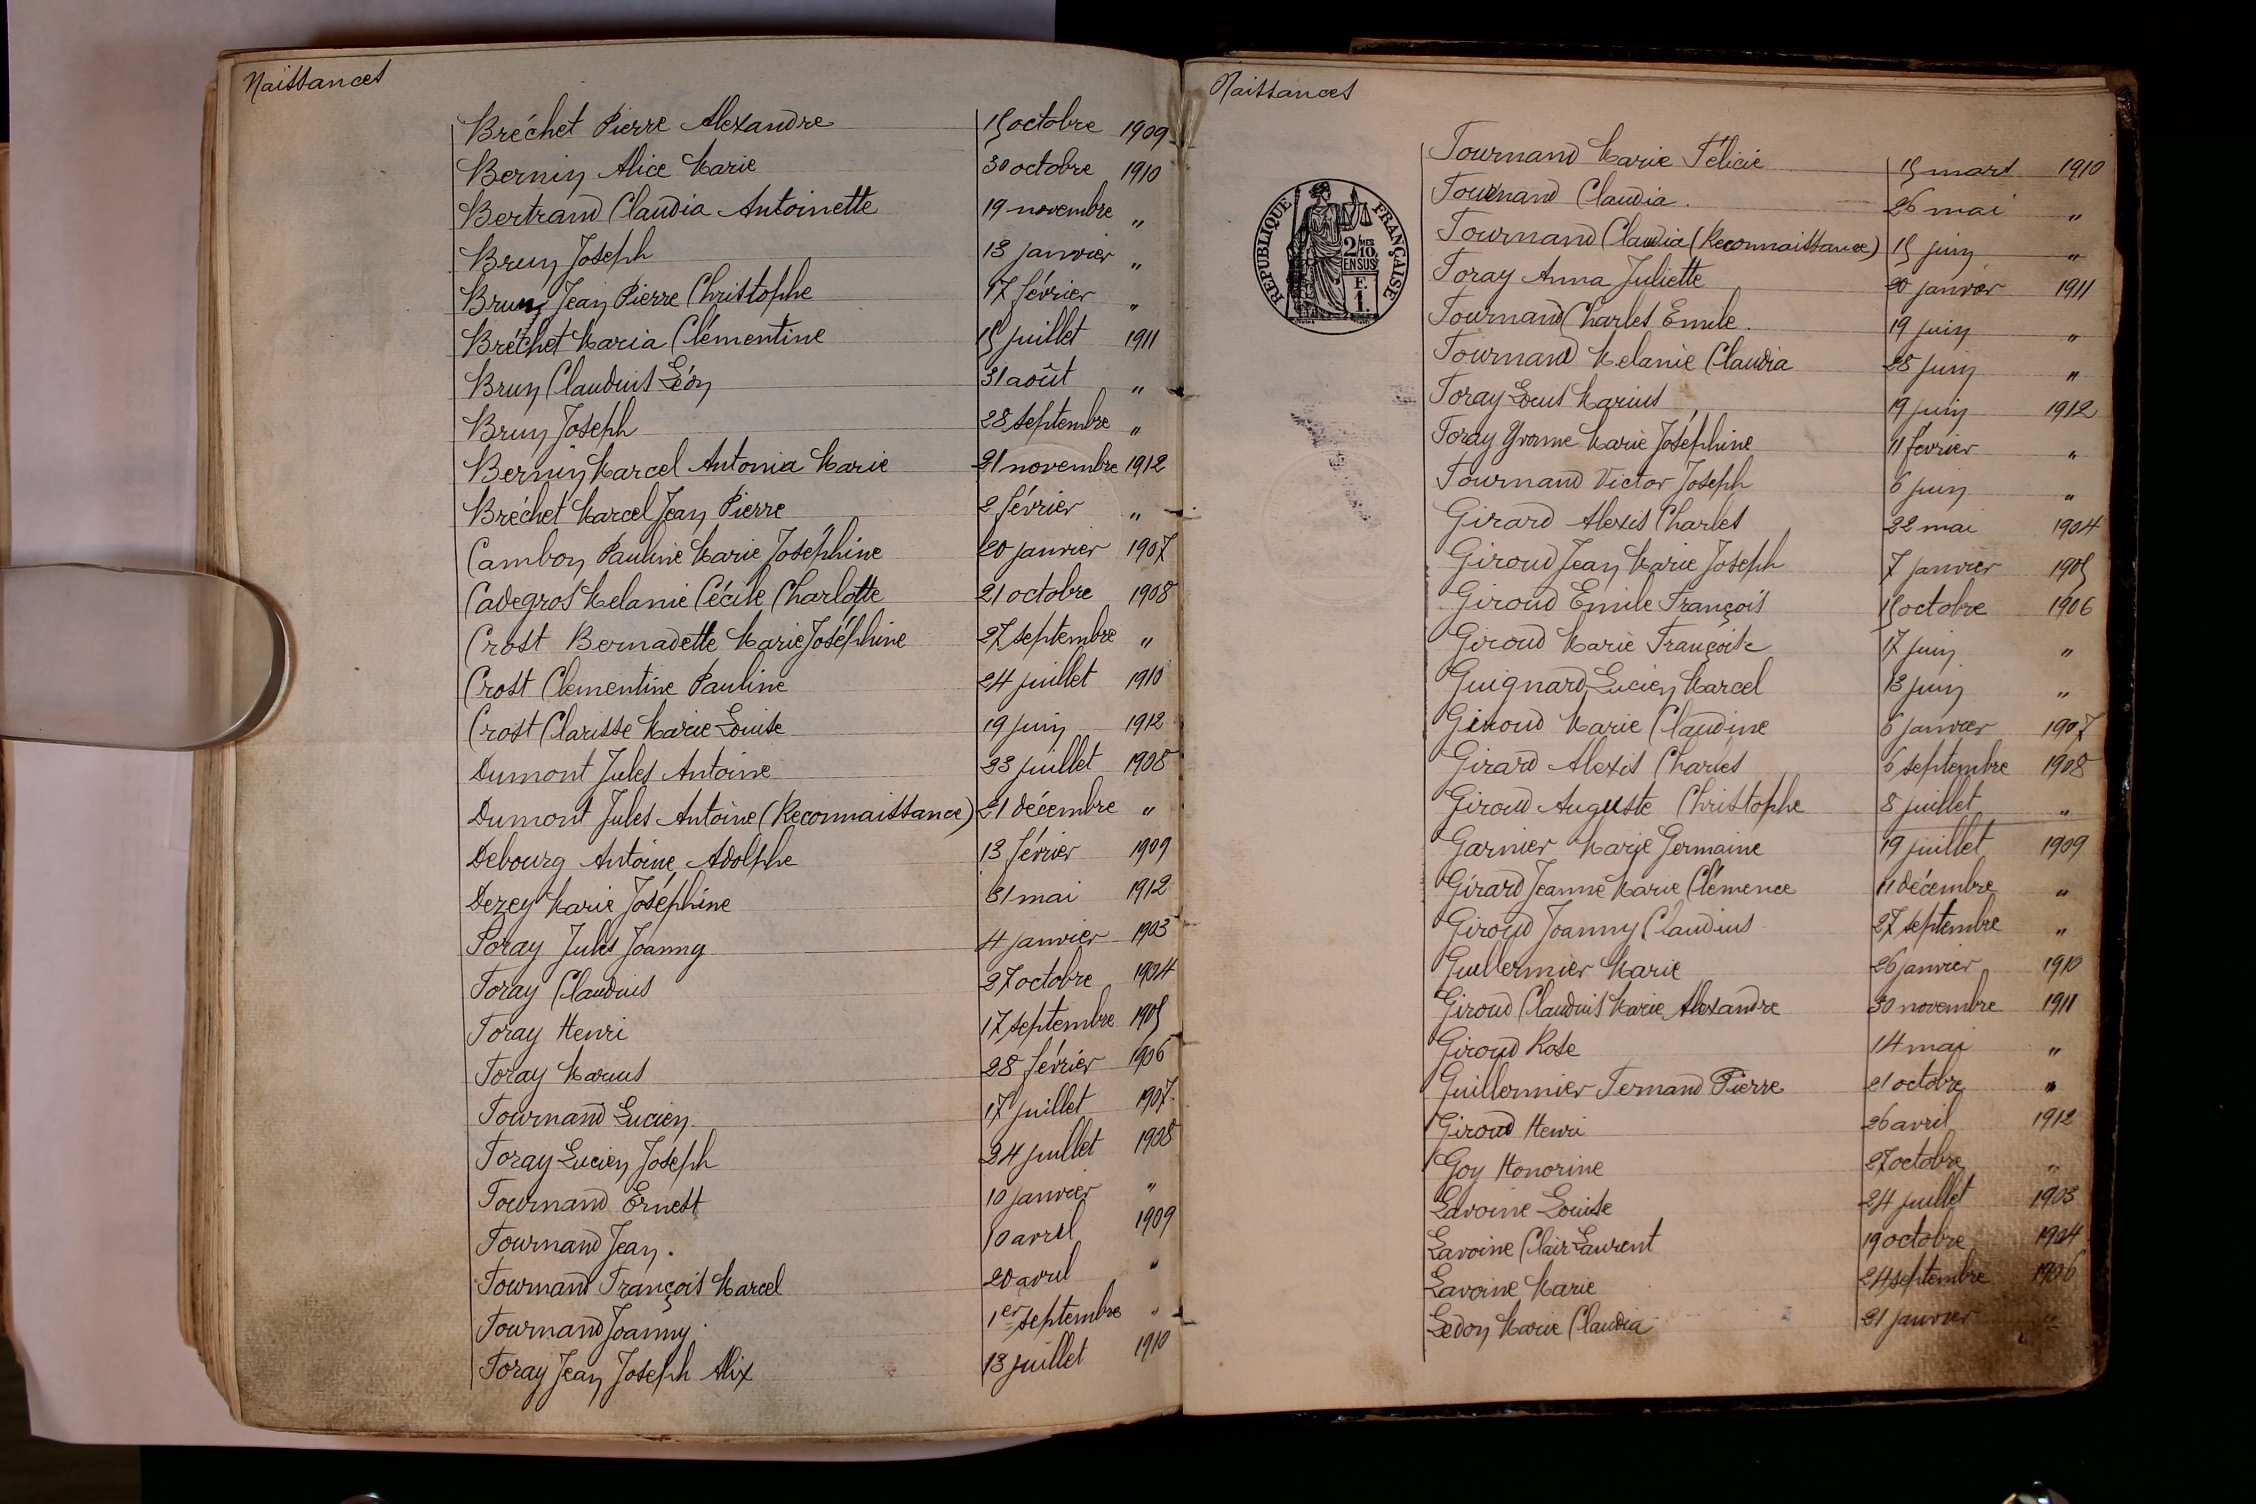 Naissances
Bréchet Pierre Alexandre 15 octobre 1909
Bernin Alice Marie 30 octobre 1910
Bertrand Claudia Antoinette 19 novembre "
Brun Joseph 13 janvier "
Brun Jean Pierre Christophe 17 février "
Bréchet Maria Clémentine 15 juillet 1911
Brun Claudius Léon 31 août "
Brun Joseph 28 septembre "
Bernin Marcel Antonia Marie 21 novembre 1912
Bréchet Marcel Jean Pierre 2 février "
Cambon Pauline Marie Joséphine 20 janvier 1907
Cadegros Melanie Cécile Charlotte 21 octobre 1908
Crost Bernadette Marie Joséphine 27 septembre "
Crost Clementine Pauline 24 juillet 1910
Crost Clarisse Marie Louise 19 juin 1912
Dumont Jules Antoine 23 juillet 1908
Dumont Jules Antoine (Reconnaissance) 21 décembre "
Debourg Antoine Adolphe 13 février 1909
Dezey Marie Joséphine 31 mai 1912
Foray Jules Joanny 4 janvier 1903
Foray Claudius 27 octobre 1904
Foray Henri 17 septembre 1905
Foray Marius 28 février 1906
Fournand Lucien 17 juillet 1907
Foray Lucien Joseph 24 juillet 1908
Fournand Ernest 10 janvier "
Fournand Jean. 10 avril 1909
Fournand François Marcel 20 avril "
Fournand Joanny. 1er septembre "
Foray Jean Joseph Alix 13 juillet 1910
Naissances
RÉPUBLIQUE FRANÇAISE
2/10 MES
EN SUS
F.
1.
Fournand Marie Félicie 15 mars 1910
Fournand Claudia. 26 mai "
Fournand Claudia (Reconnaissance) 15 juin "
Foray Anna Juliette 20 janvier 1911
Fournand Charles Emile. 19 juin "
Fournand Melanie Claudia 28 juin "
Foray Louis Marius 19 juin 1912
Foray Yvonne Marie Joséphine 11 février "
Fournand Victor Joseph 6 juin "
Girard Alexis Charles 22 mai 1904
Giroud Jean Marie Joseph 7 janvier 1905
Giroud Emile François 15 octobre 1906
Giroud Marie Françoise 17 juin "
Guignard Lucien Marcel 13 juin "
Giroud Marie Claudine 6 janvier 1907
Girard Alexis Charles 6 septembre 1908
Giroud Auguste Christophe 8 juillet "
Garnier Marie Germaine 19 juillet 1909
Girard Jeanne Marie Clémence 11 décembre "
Giroud Joanny Claudius 27 septembre "
Guillermier Marie 26 janvier 1910
Giroud Claudius Marie Alexandre 30 novembre 1911
Giroud Rose 14 mai "
Guillermier Fernand Pierre 21 octobre "
Giroud Henri 26 avril 1912
Goy Honorine 27 octobre "
Lavoine Louise 24 juillet 1903
Lavoine Clair Laurent 19 octobre 1904
Lavoine Marie 24 septembre 1906
Ledon Marie Claudia 21 janvier "